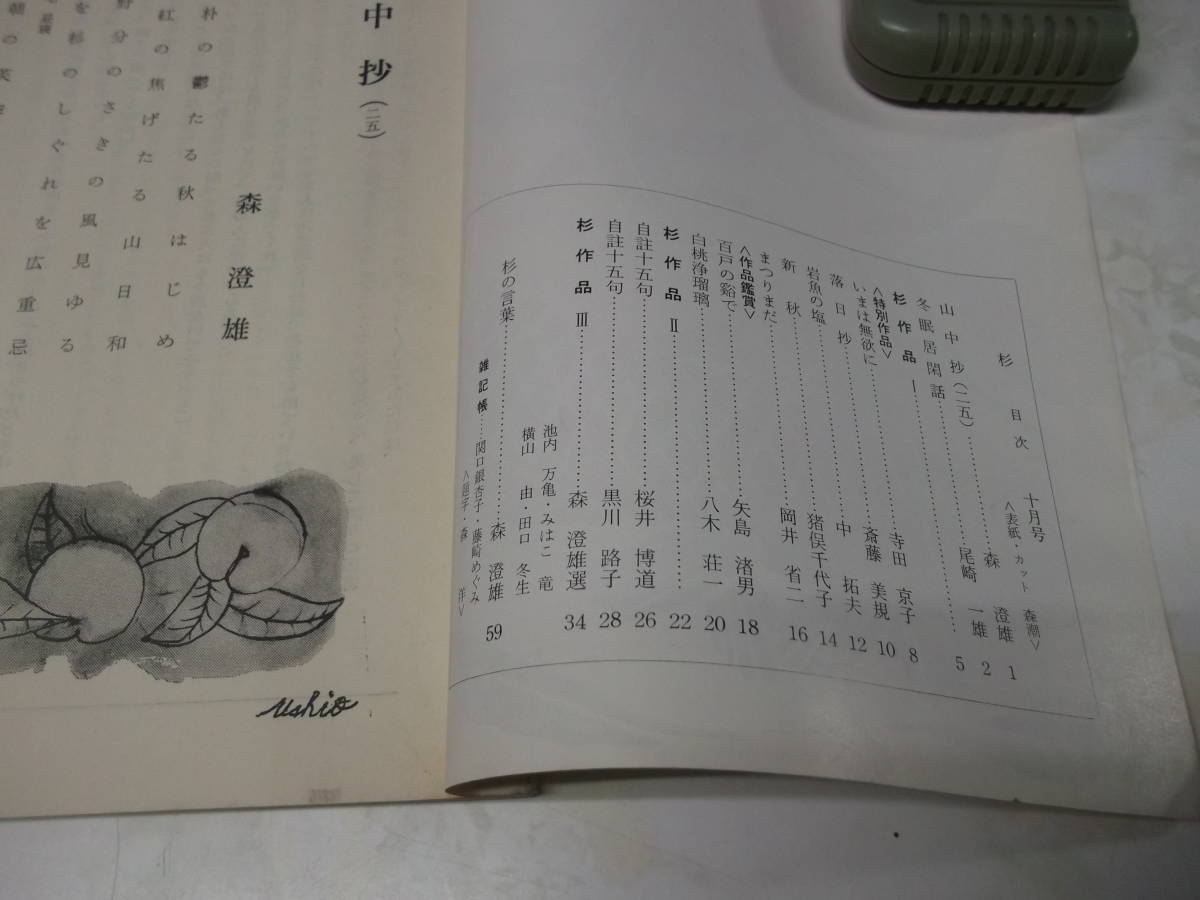 杉 目次 十月号
<表紙・カット 森潮>
山中抄(二五)……森 澄雄 1
冬眠居閑話……尾崎 一雄 2
杉作品 Ⅰ…… 5
<特別作品>
いまは無欲に……寺田 京子 8
落日抄……斎藤 美規 10
岩魚の塩……中 拓夫 12
新秋……猪俣千代子 14
まつりまだ……岡井 省二 16
<作品鑑賞>
百戸の谿で……矢島 渚男 18
白桃浄瑠璃……八木 荘一 20
杉作品 Ⅱ…… 22
自註十五句……桜井 博道 26
自註十五句……黒川 路子 28
杉作品 Ⅲ……森 澄雄選 34
池内 万亀・みはこ 竜
横山 由・田口 冬生
杉の言葉……森 澄雄 59
雑記帳……関口銀杏子・藤崎めぐみ
<題字・森 洋>
中抄(二五)
森 澄雄
朴の鬱たる秋はじめ
紅の焦げたる山日和
野分のさきの風見ゆる
を杉のしぐれを広重忌
朝の笑
Ushio